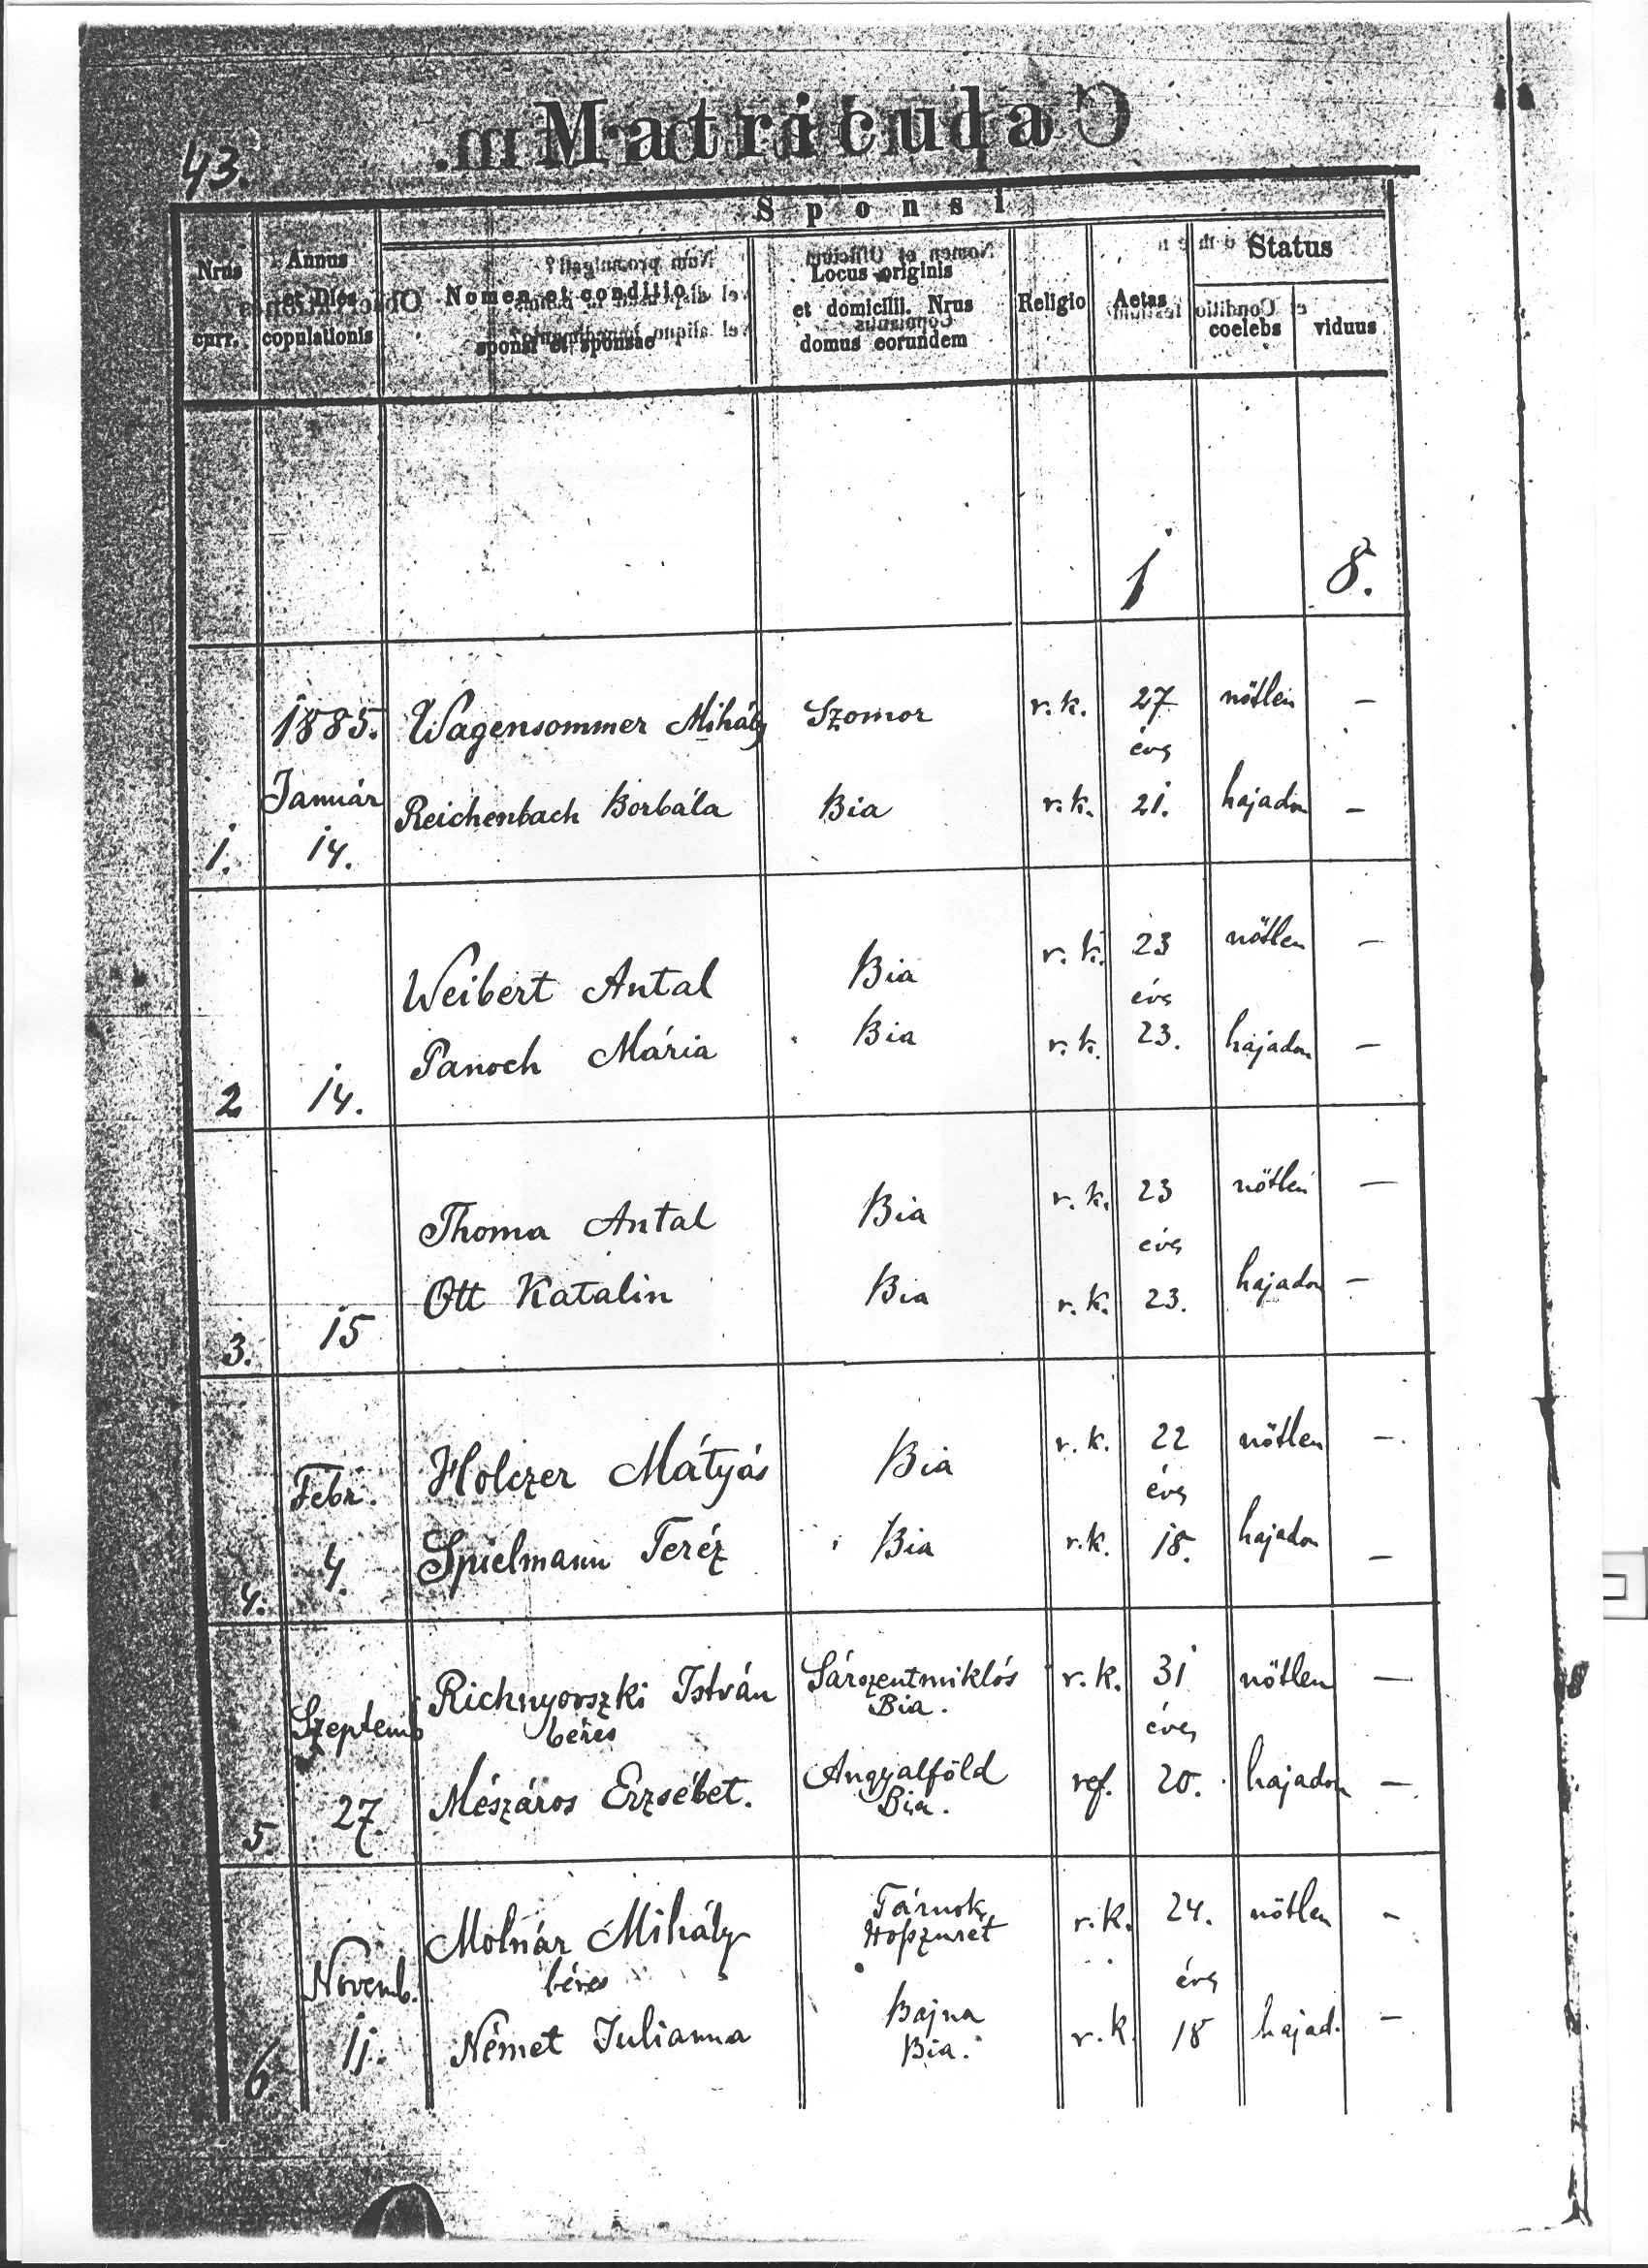 43.
Matricula
Sponsi
Nrus curr.
Annus et Dies copulationis
Nomen et conditio sponsi et sponsae
Locus originis et domicilii. Nrus domus eorundem
Religio
Aetas
Status
coelebs
viduus
1 8.
1885. Wagensommer Mihály Szomor r. k. 27 nőtlen —
éves
Január Reichenbach Borbála Bia r. k. 21. hajadon —
1. 14.
Weibert Antal Bia r. k. 23 nőtlen —
éves
Panoch Mária Bia r. k. 23. hajadon —
2 14.
Thoma Antal Bia r. k. 23 nőtlen —
éves
Ott Katalin Bia r. k. 23. hajadon —
3. 15
Holczer Mátyás Bia r. k. 22 nőtlen —
Febr. éves
4. 4. Spielmann Teréz Bia r. k. 18. hajadon —
Richnyovszki István Sárszentmiklós r. k. 31 nőtlen —
Szeptemb béres Bia. éves
Mészáros Erzsébet. Angyalföld ref. 20. hajadon —
5. 27. Bia.
Molnár Mihály Tárnok r. k. 24. nőtlen -
Novemb. béres éves
Német Julianna Bajna r. k. 18 hajad. —
6 11. Bia.